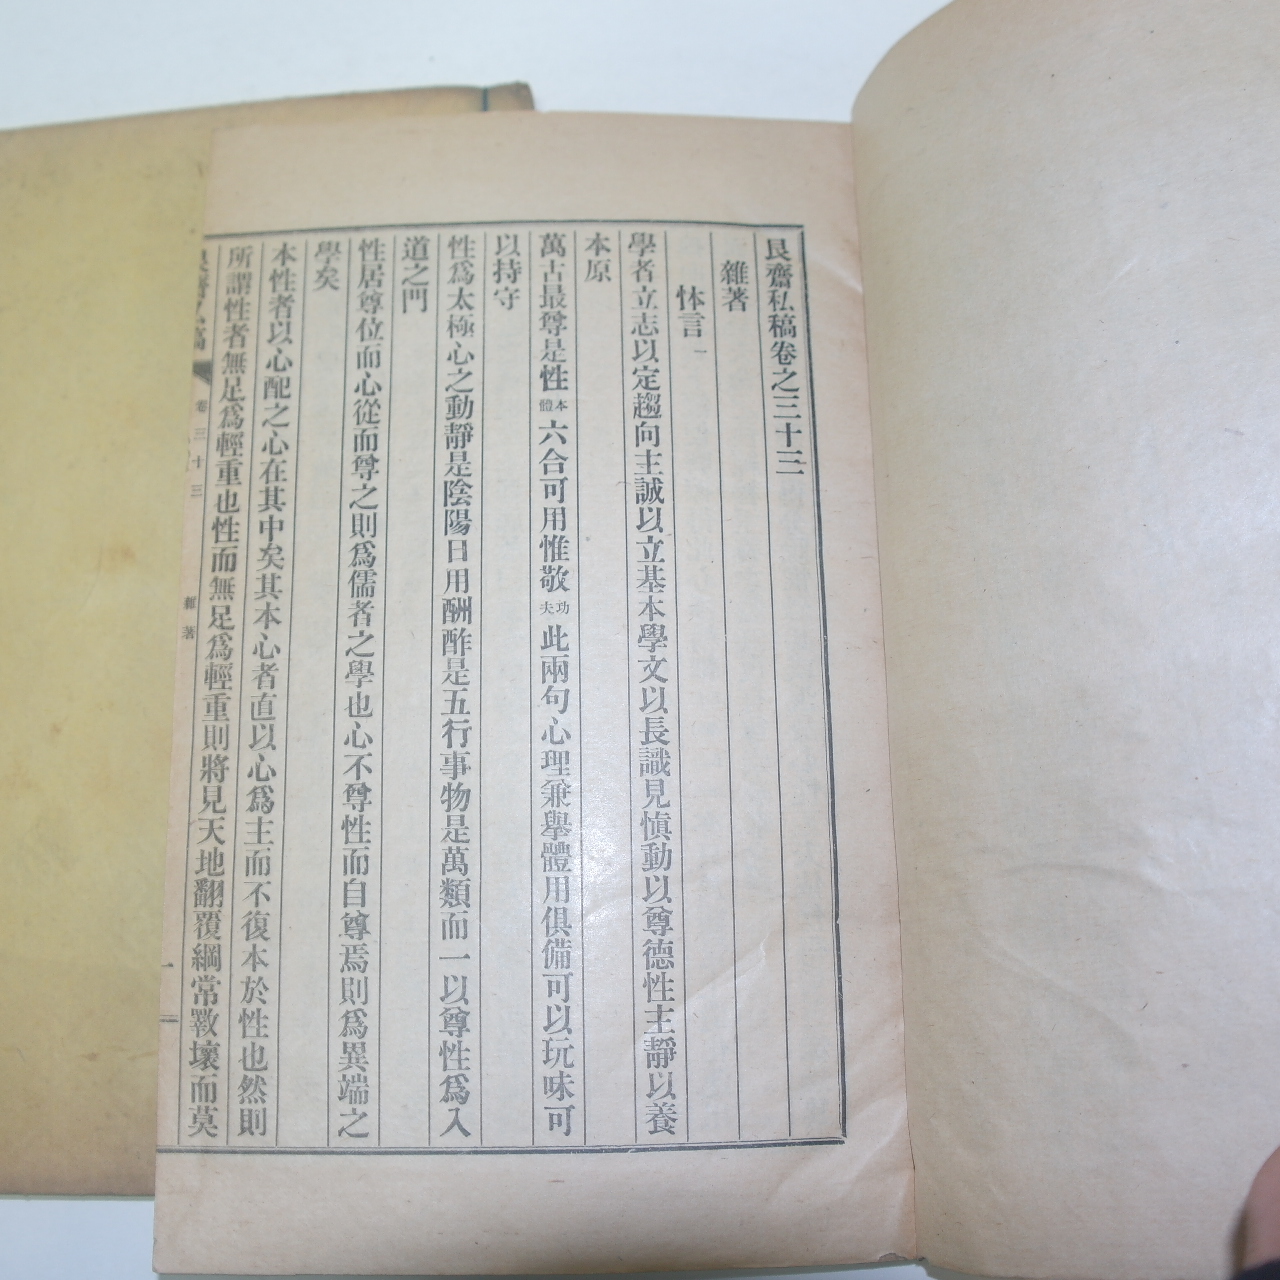 艮齋私稿卷之三十三
雜著
体言
學者立志以定趨向主誠以立基本學文以長識見愼動以尊德性主靜以養
本原
萬古最尊是性本體六合可用惟敬功夫此兩句心理兼擧體用俱備可以玩味可
以持守
性爲太極心之動靜是陰陽日用酬酢是五行事物是萬類而一以尊性爲入
道之門
性居尊位而心從而尊之則爲儒者之學也心不尊性而自尊焉則爲異端之
學矣
本性者以心配之心在其中矣其本心者直以心爲主而不復本於性也然則
所謂性者無足爲輕重也性而無足爲輕重則將見天地翻覆綱常斁壞而莫
卷三十三
雜著
一